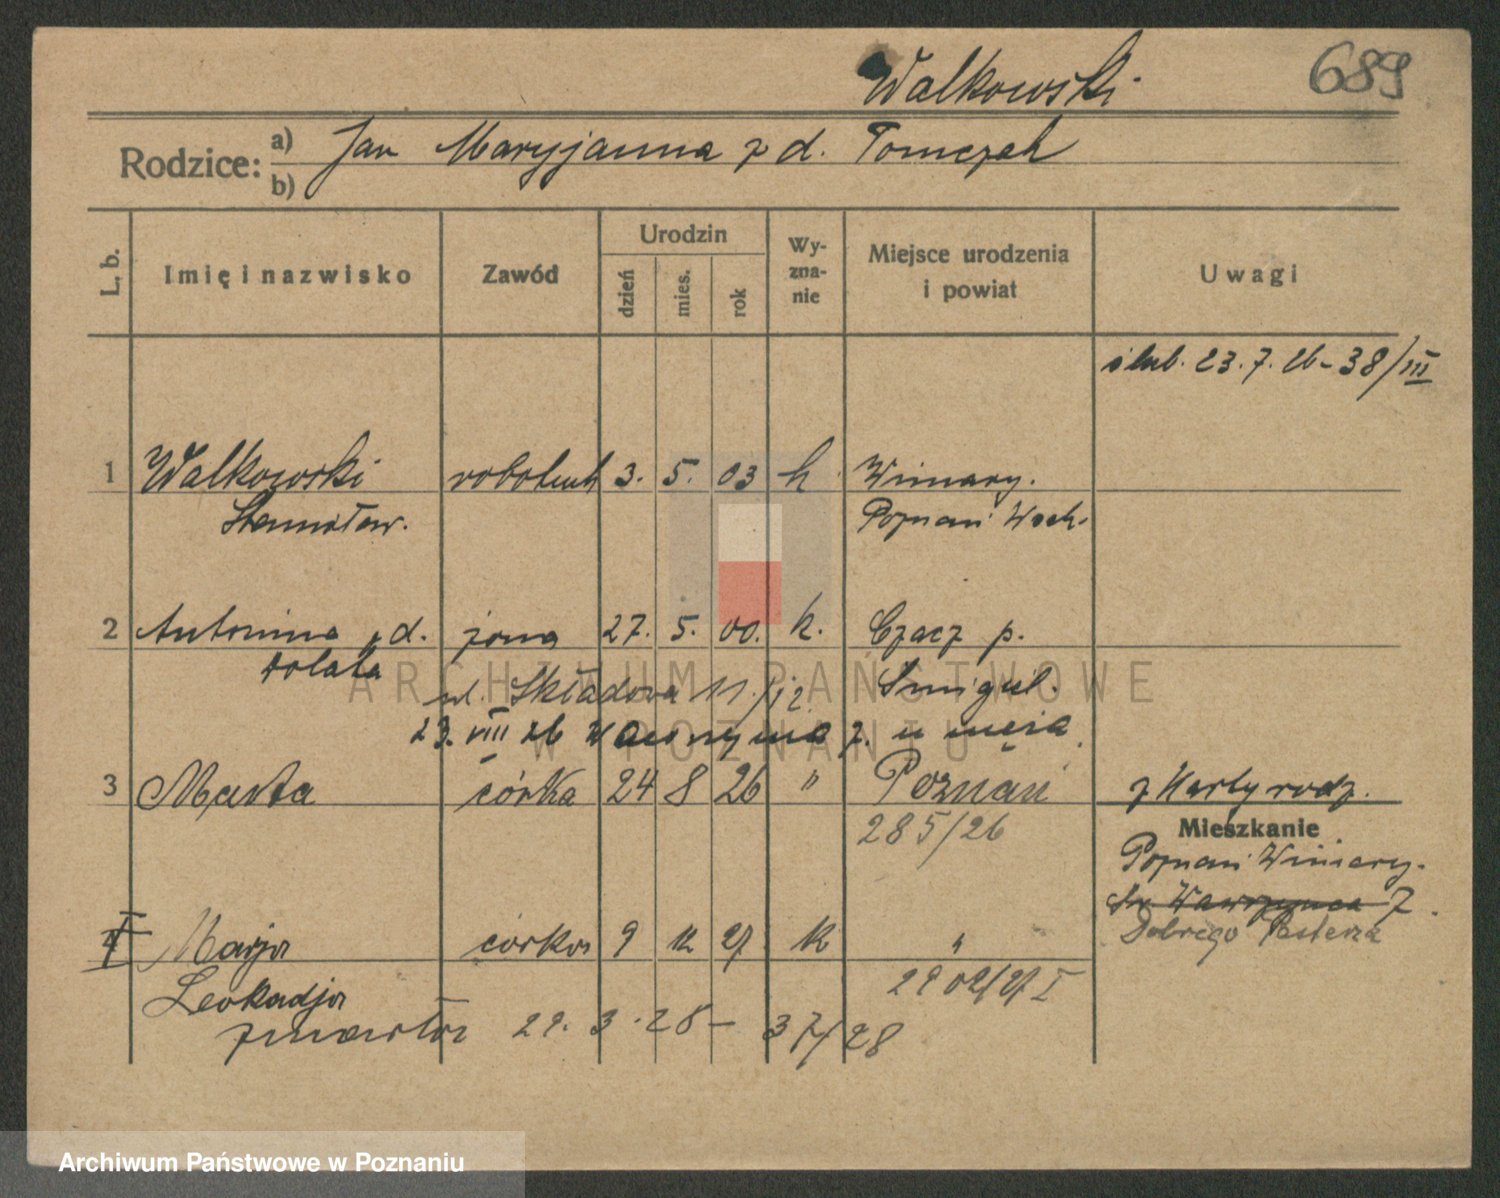 Walkowski
689
Rodzice: a) Jan Maryjanna z d. Tomczak
b)
L. b.
Imię i nazwisko
Zawód
Urodzin
dzień
mies.
rok
Wy-
zna-
nie
Miejsce urodzenia
i powiat
Uwagi
ślub. 23.7.26 - 38/III
1 Walkowski robotnik 3. 5. 03 k Winiary.
Stanisław. Poznań Wsch.
2 Antonina z d. żona 27. 5. 00. k. Czacz p.
Ratata Śmigiel.
ul. Składowa 11./12.
23. VIII 26 Wawrzyńca 7. u męża.
3 Marta córka 24 8 26 " Poznań z Karty rodz.
285/26
Mieszkanie
Poznań Winiary.
Św. Wawrzyńca 7.
Dobrego Pasterza
4 Marja córka 9 12 27 k "
Leokadja 2902/27 I
zmarła 29. 3. 28 - 37/28
ARCHIWUM PAŃSTWOWE
W POZNANIU
Archiwum Państwowe w Poznaniu